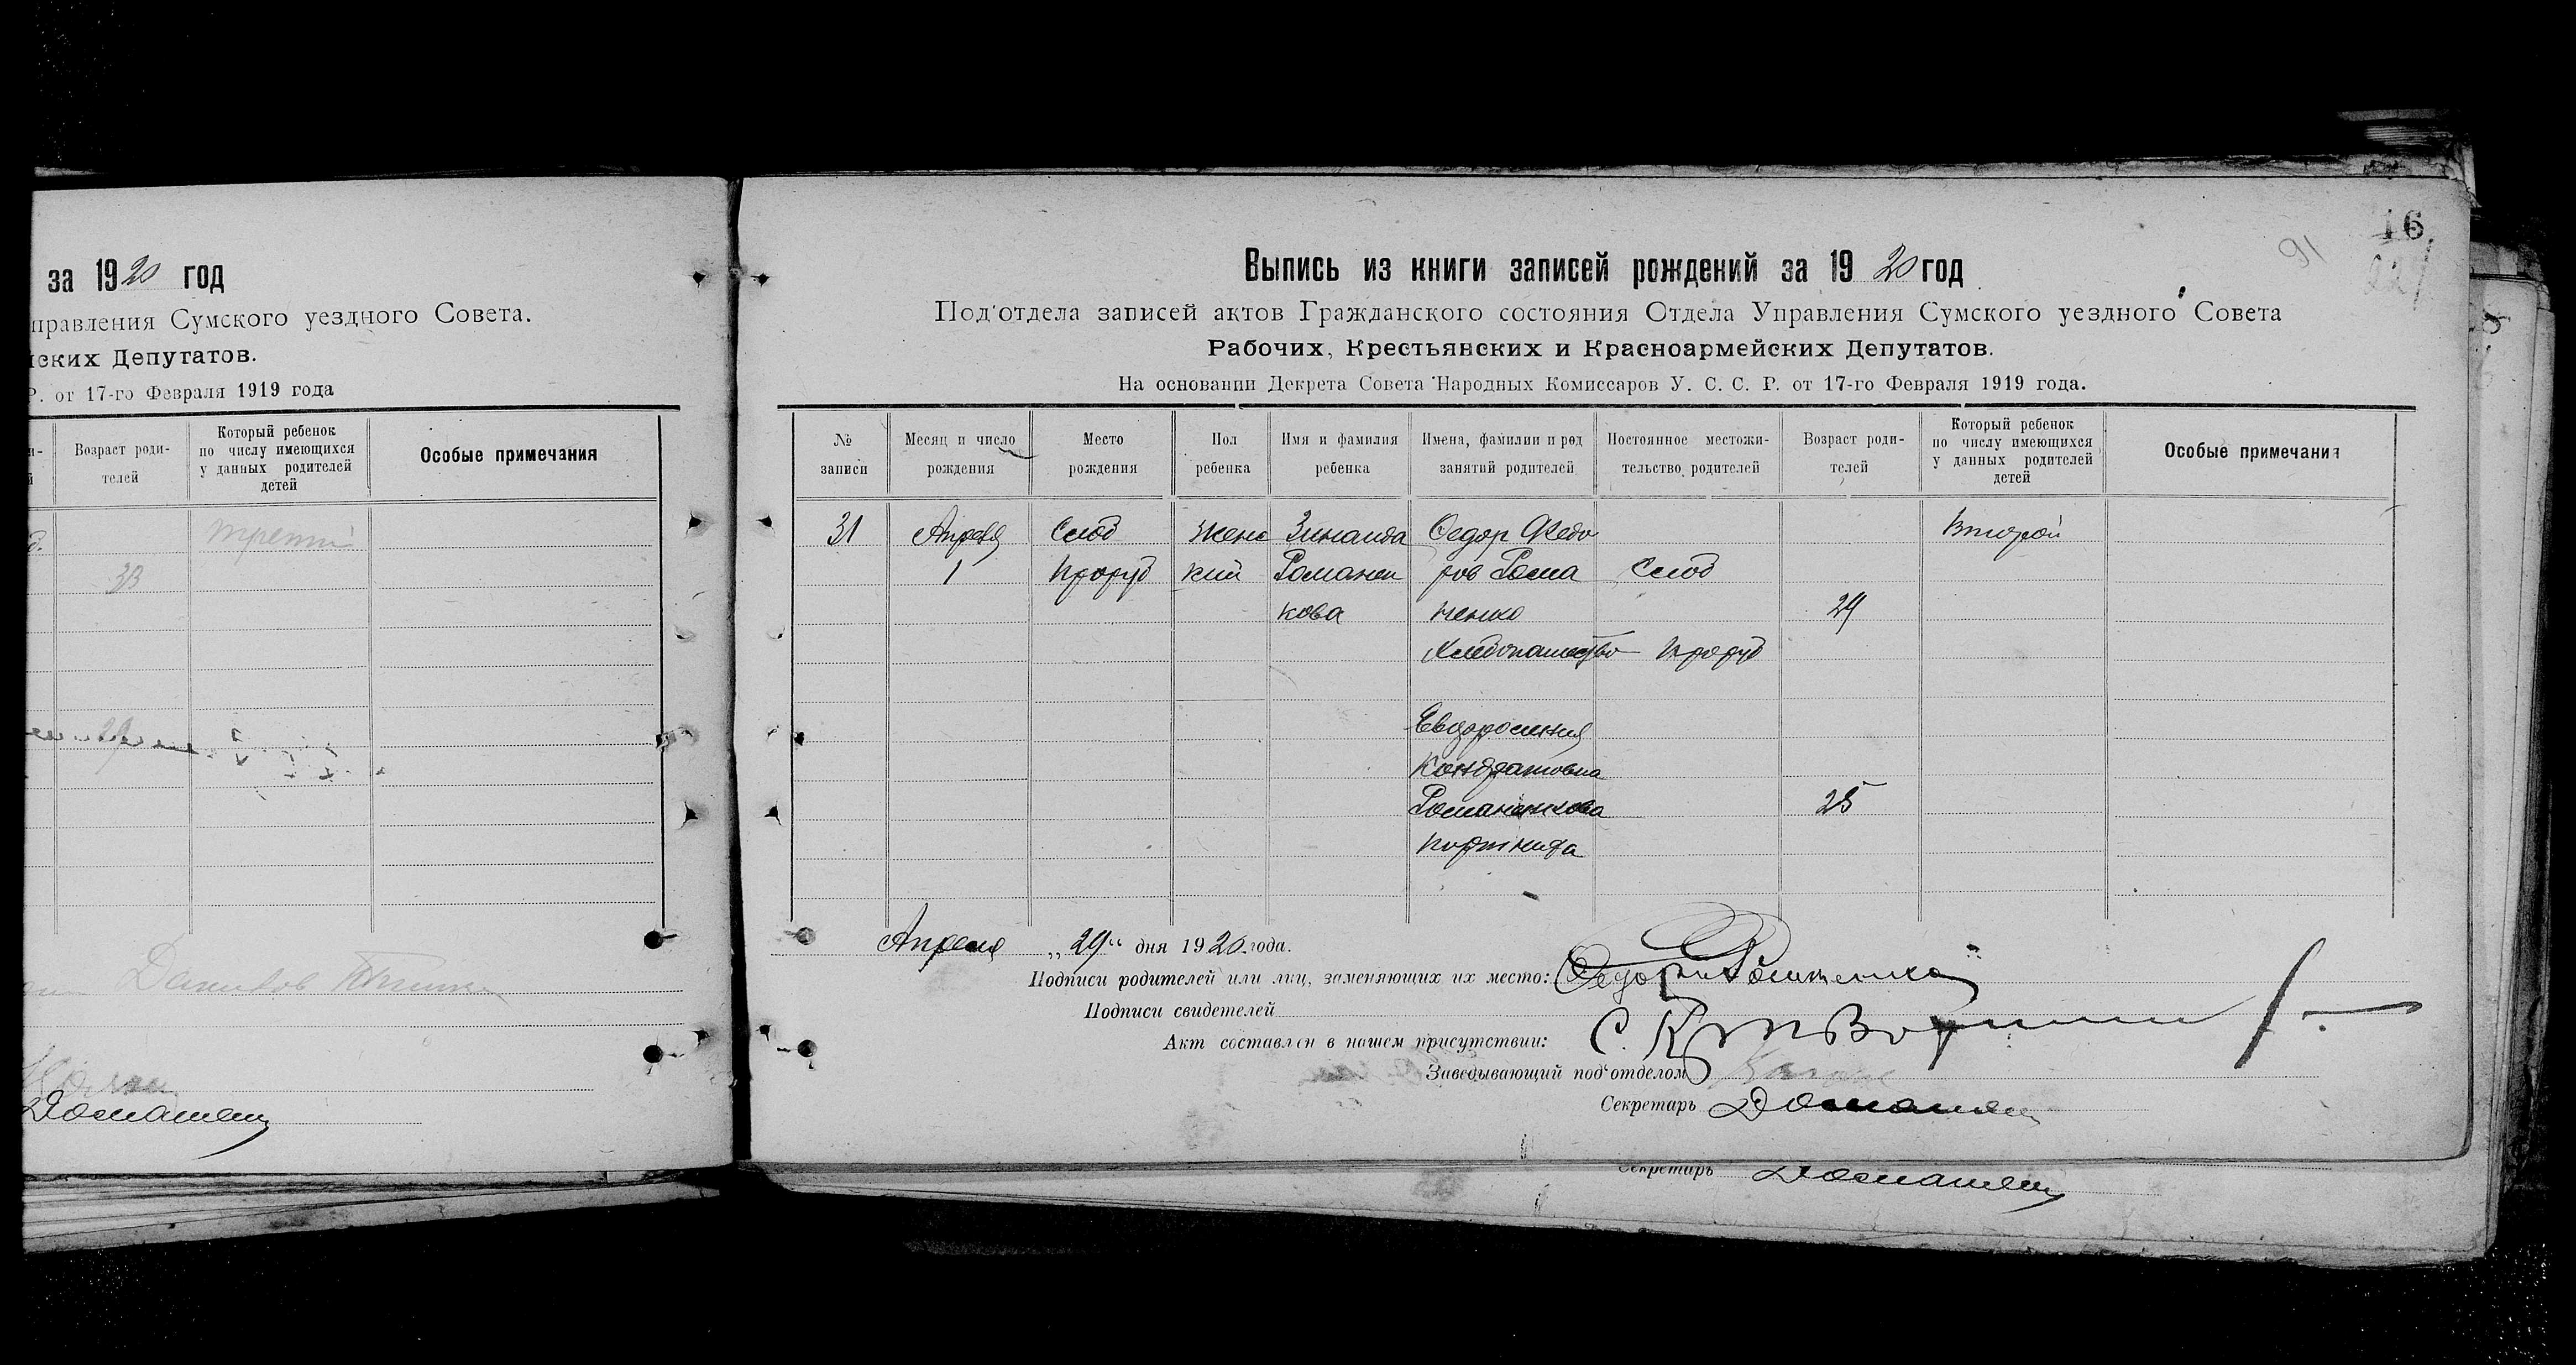 за 1920 год
правления Сумского уездного Совета.
нских Депутатов.
Р. от 17-го Февраля 1919 года
Возраст роди-
телей
Который ребенок
по числу имеющихся
у данных родителей
детей
Особые примечания
третий
33
29
Данилов
Домашен
16
91
Выпись из книги записей рождений за 1920 год
Под'отдела записей актов Гражданского состояния Отдела Управления Сумского уездного Совета
Рабочих, Крестьянских и Красноармейских Депутатов.
На основании Декрета Совета Народных Комиссаров У. С. С. Р. от 17-го Февраля 1919 года.
№
записи
Месяц и число
рождения
Место
рождения
Пол
ребенка
Имя и фамилия
ребенка
Имена, фамилии и род
занятий родителей
Постоянное местожи-
тельство родителей
Возраст роди-
телей
Который ребенок
по числу имеющихся
у данных родителей
детей
Особые примечания
31 Апреля Слоб Женс Зинаида Федор Федо Второй
1 Проруб кий Романен ров Рома Слоб
кова ненко 29
Хлебопашество Проруб
Евдоросиния
Кондратовна
Романенкова 25
портниха
Апреля „29“ дня 1920 года.
Подписи родителей или лиц, заменяющих их место: Федор Романенко
Подписи свидетелей
Акт составлен в нашем присутствии:
Заведывающий под'отделом
Секретарь Домашен
Секретарь Домашен